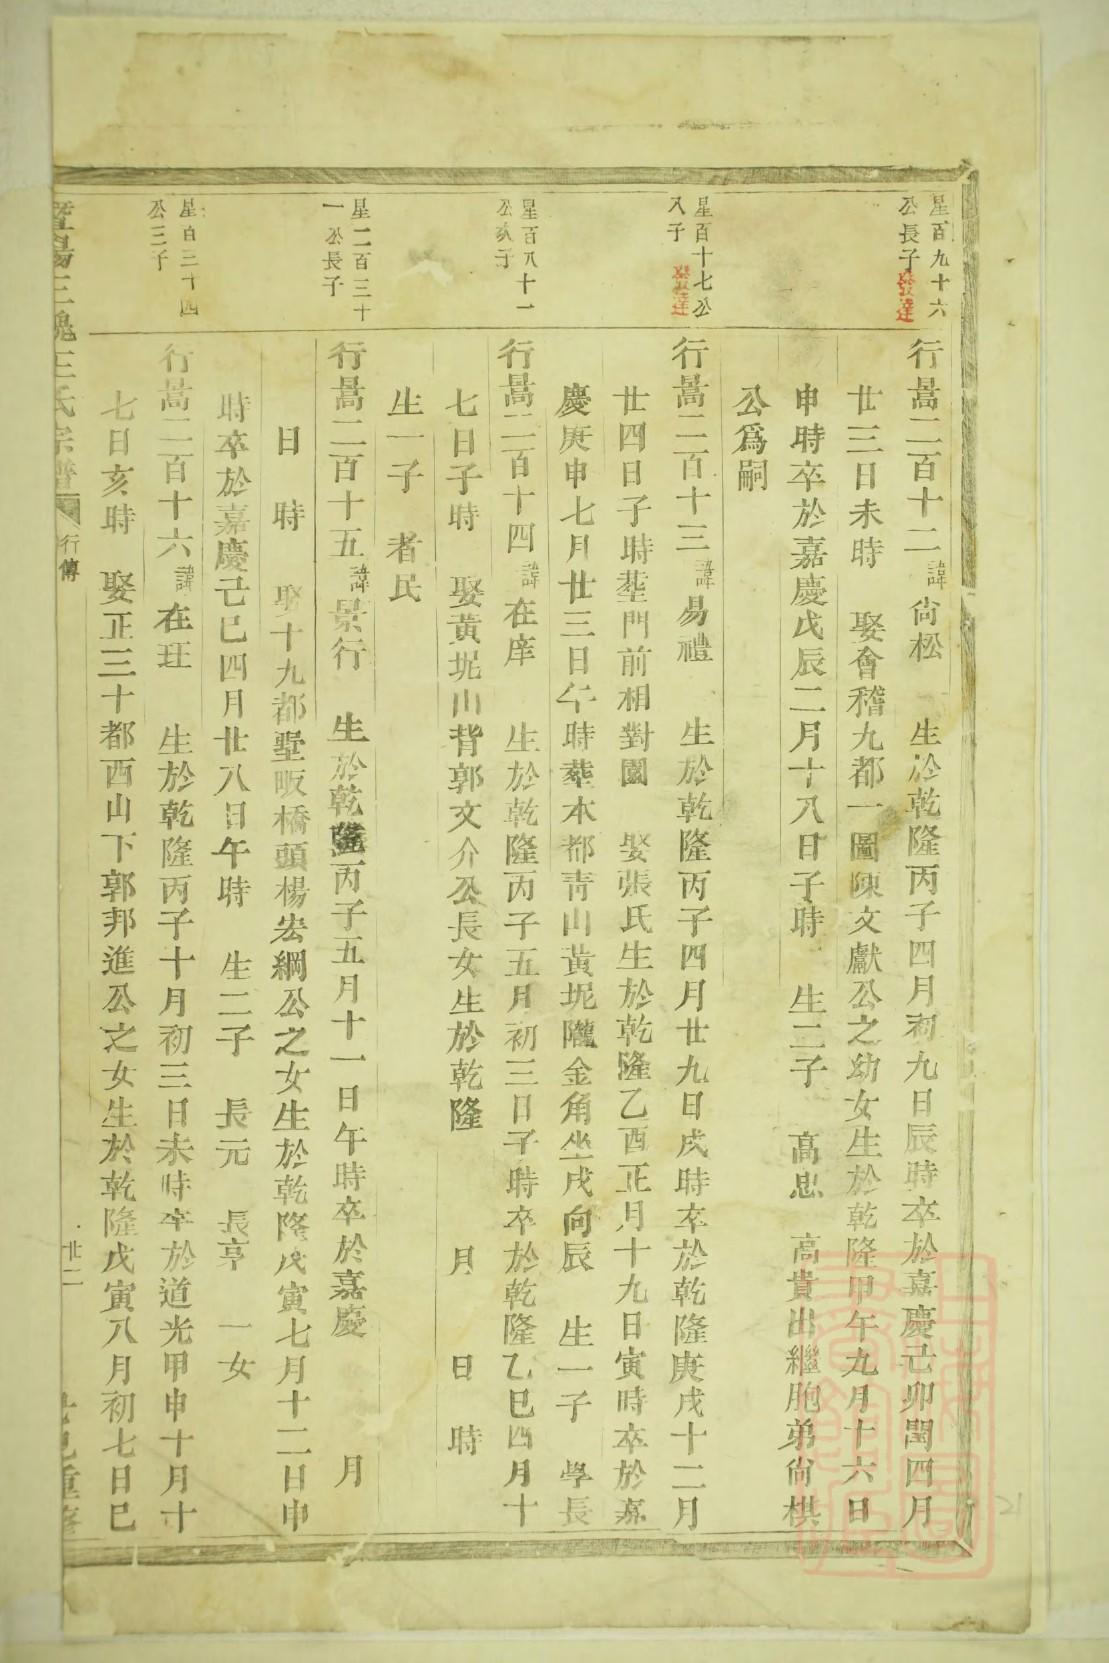 星百九十六
公長子發達
行暠二百十二諱尙松 生於乾隆丙子四月初九日辰時卒於嘉慶己卯閏四月
廿三日未時 娶會稽九都一圖陳文獻公之幼女生於乾隆甲午九月十六日
申時卒於嘉慶戊辰二月十八日子時 生二子 高忠 高貴出繼胞弟尙棋
公爲嗣
星百十七公
入子 發達
行暠二百十三諱易禮 生於乾隆丙子四月廿九日戌時卒於乾隆庚戌十二月
廿四日子時塟門前相對園 娶張氏生於乾隆乙酉正月十九日寅時卒於嘉
慶庚申七月廿三日午時塟本都靑山黃坭隴金角坐戌向辰 生一子 學長
星百八十一
公次子
行暠二百十四諱在庠 生於乾隆丙子五月初三日子時卒於乾隆乙巳四月十
七日子時 娶黃坭山背郭文介公長女生於乾隆 月 日 時
生一子 者民
星二百三十
一公長子
行暠二百十五諱景行 生於乾隆丙子五月十一日午時卒於嘉慶 月
日 時 娶十九都墅畈橋頭楊宏綱公之女生於乾隆戊寅七月十二日申
時卒於嘉慶己巳四月廿八日午時 生二子 長元 長亨 一女
星百三十四
公三子
行暠二百十六諱在玨 生於乾隆丙子十月初三日未時卒於道光甲申十月十
七日亥時 娶正三十都西山下郭邦進公之女生於乾隆戊寅八月初七日巳
暨陽三槐王氏宗譜 行傳 廿二 重修
21